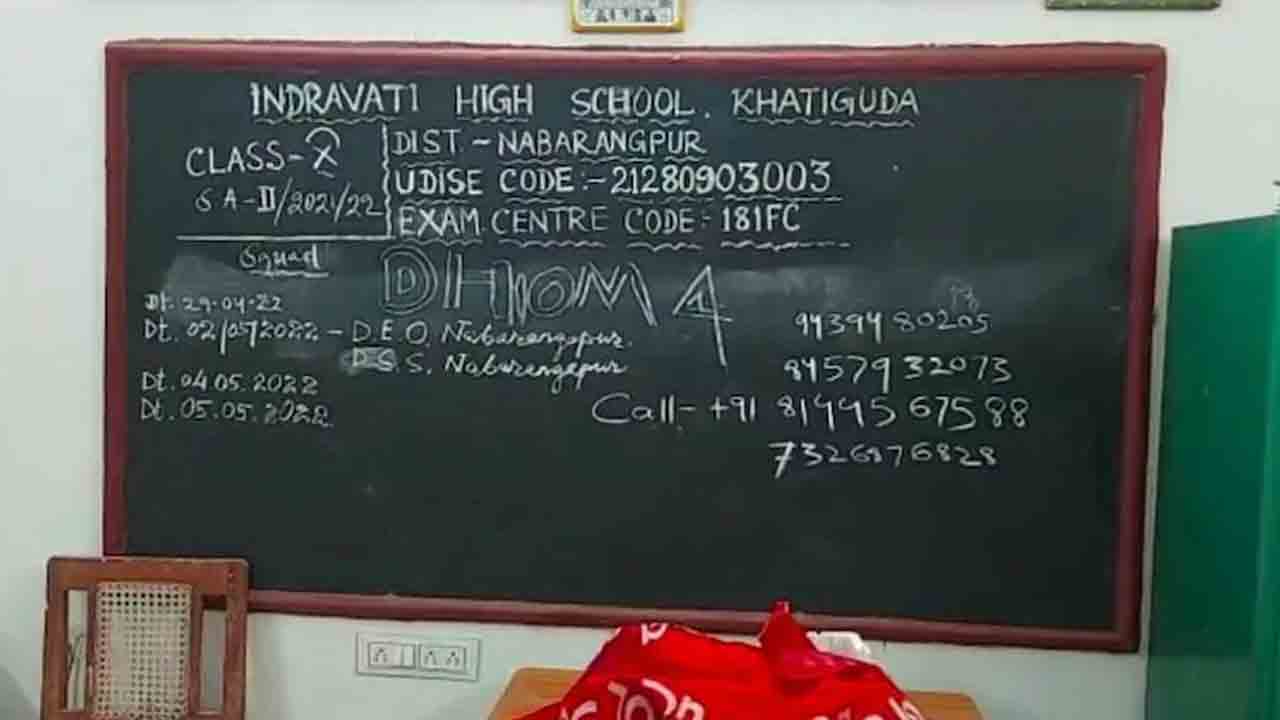 INDRAVATI HIGH SCHOOL. KHATIGUDA
CLASS-X
SA-II/2021/22
DIST. - NABARANGPUR
UDISE CODE:- 21280903003
EXAM CENTRE CODE:- 181FC
Squad
DHOOM 4
Dt. 29-04-22
Dt. 02/05/2022 - D.E.O, Nabarangapur.
D.S.S, Nabarangapur
Dt. 04.05.2022
Dt. 05.05.2022
9439480205
8457932073
Call:- +91 8144567588
7326876828